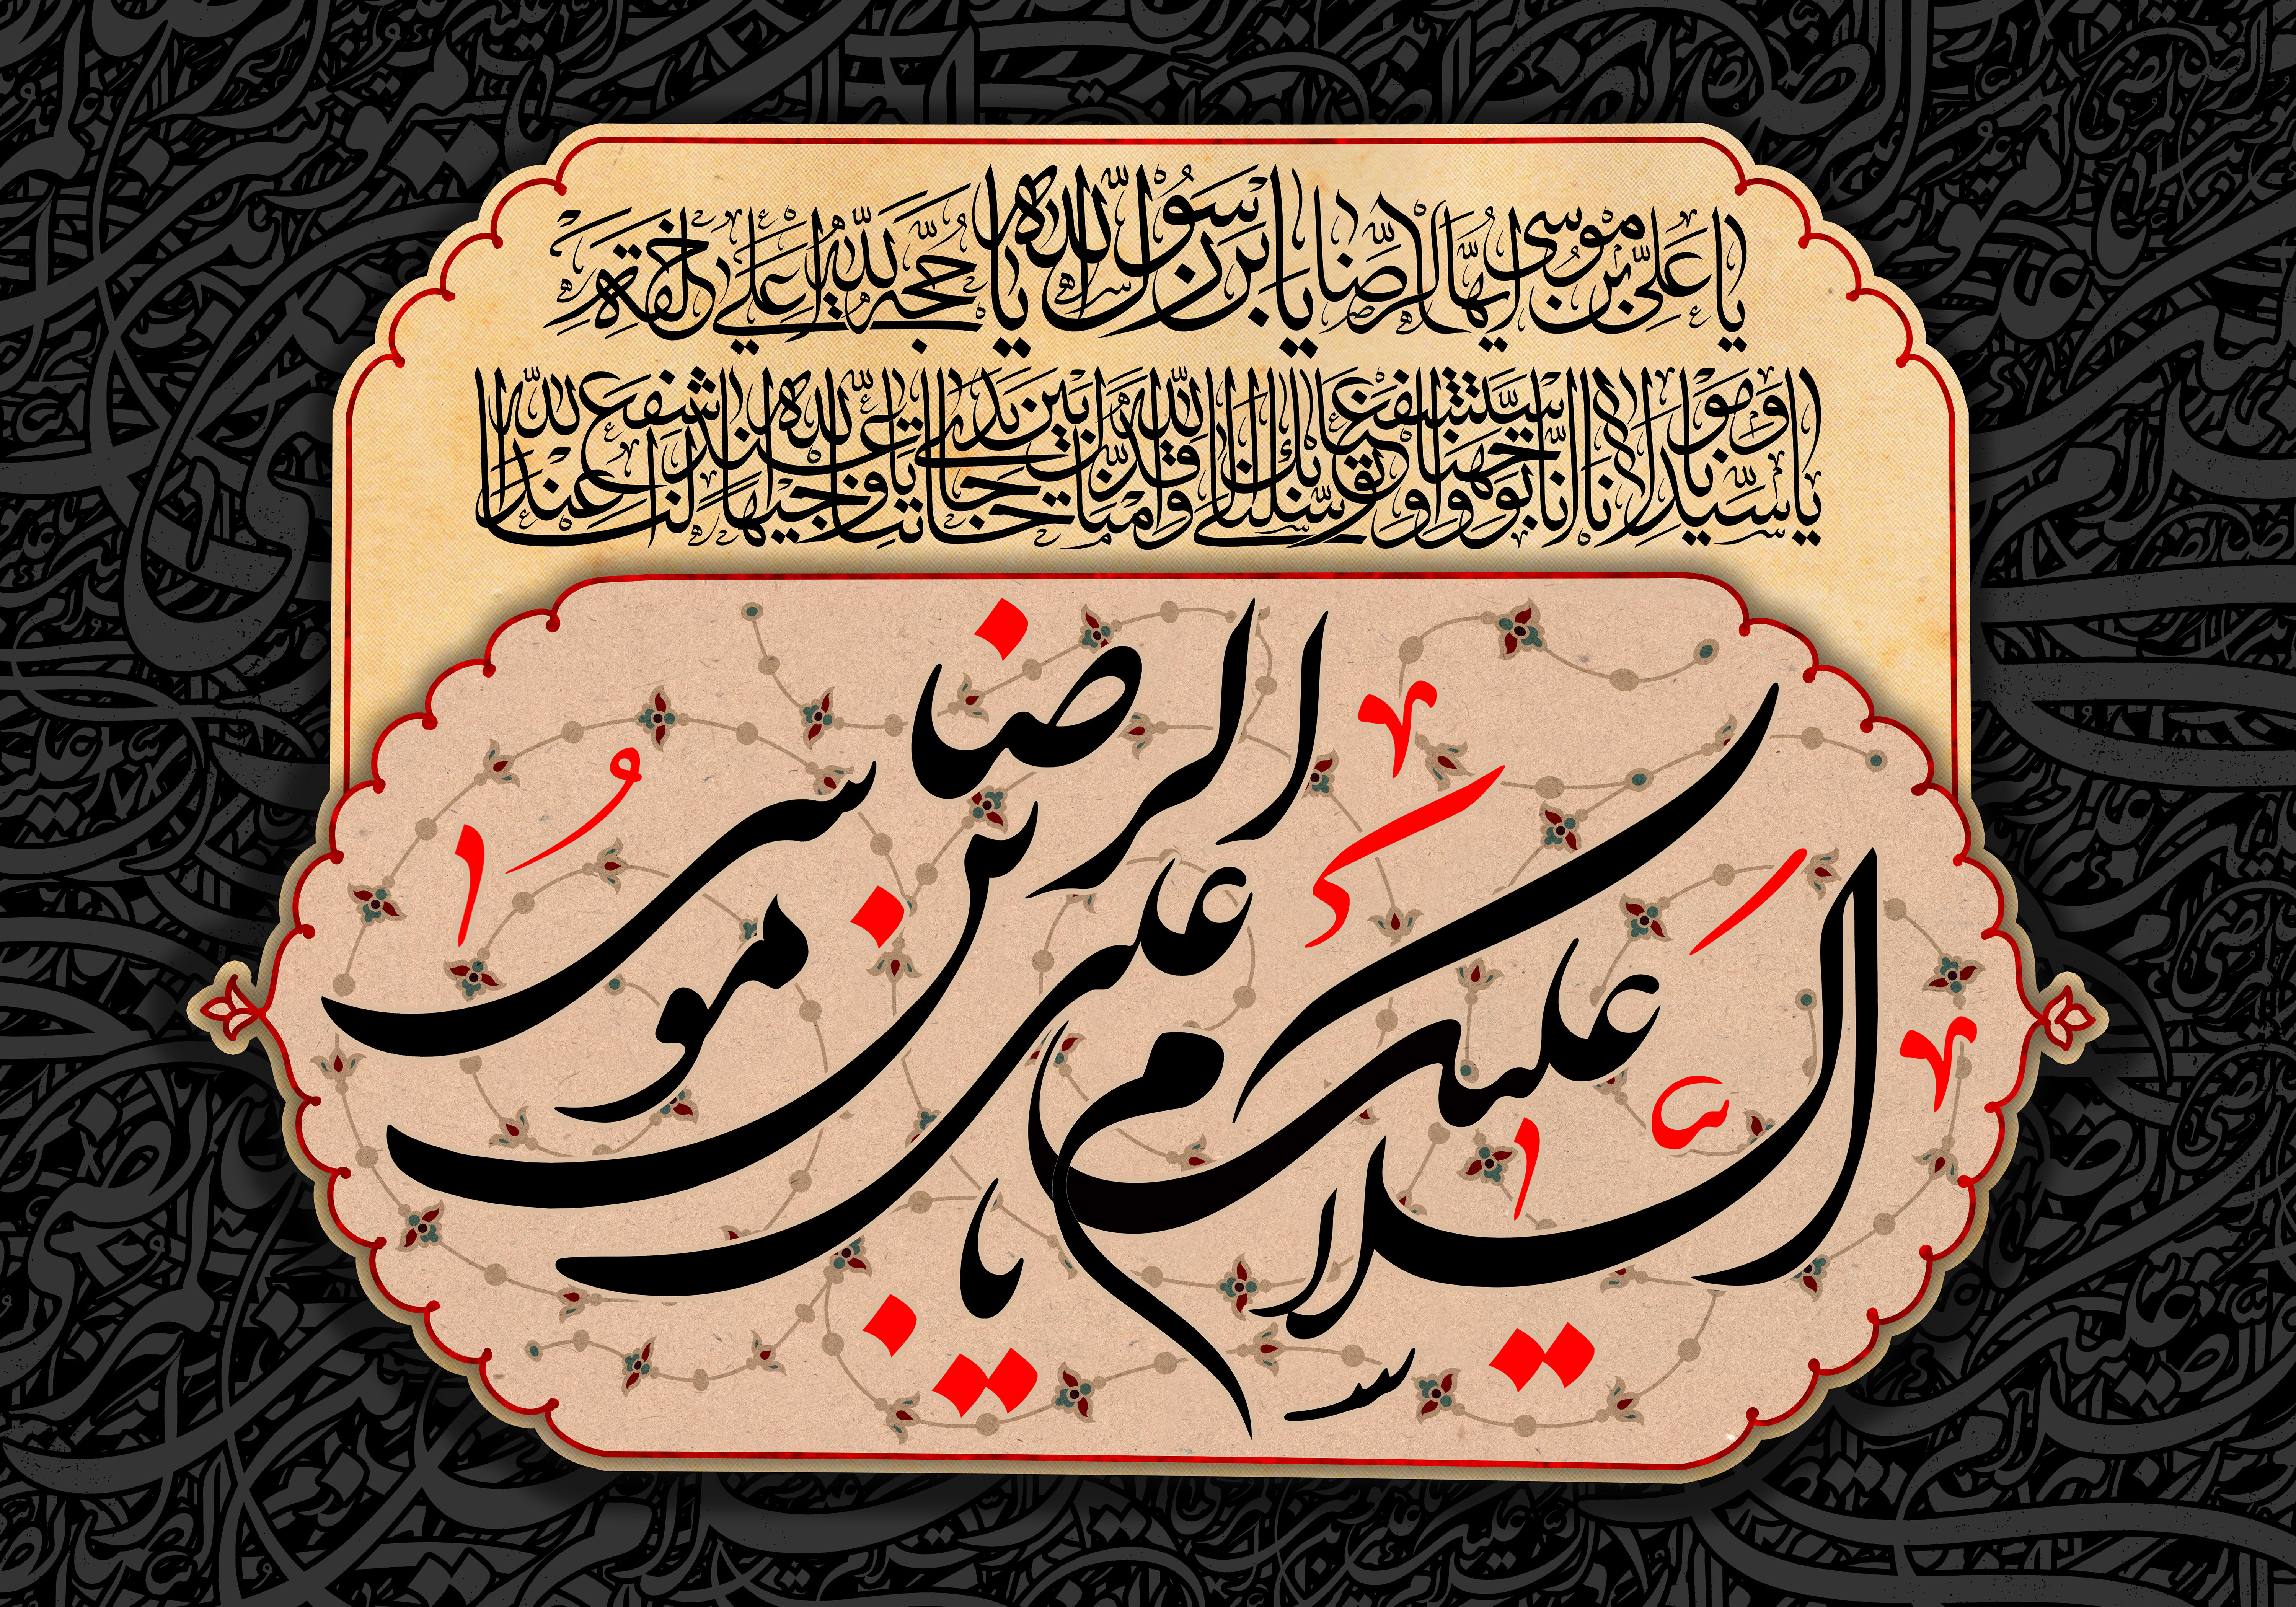 يا علي بن موسى ايها الرضا يا بن رسول الله يا حجة الله على خلقه
يا سيدنا و مولانا انا توجهنا و استشفعنا و توسلنا بك الى الله و قدمناك بين يدي حاجاتنا يا وجيها عند الله اشفع لنا عند الله
السلام علیک یا علی بن موسی الرضا